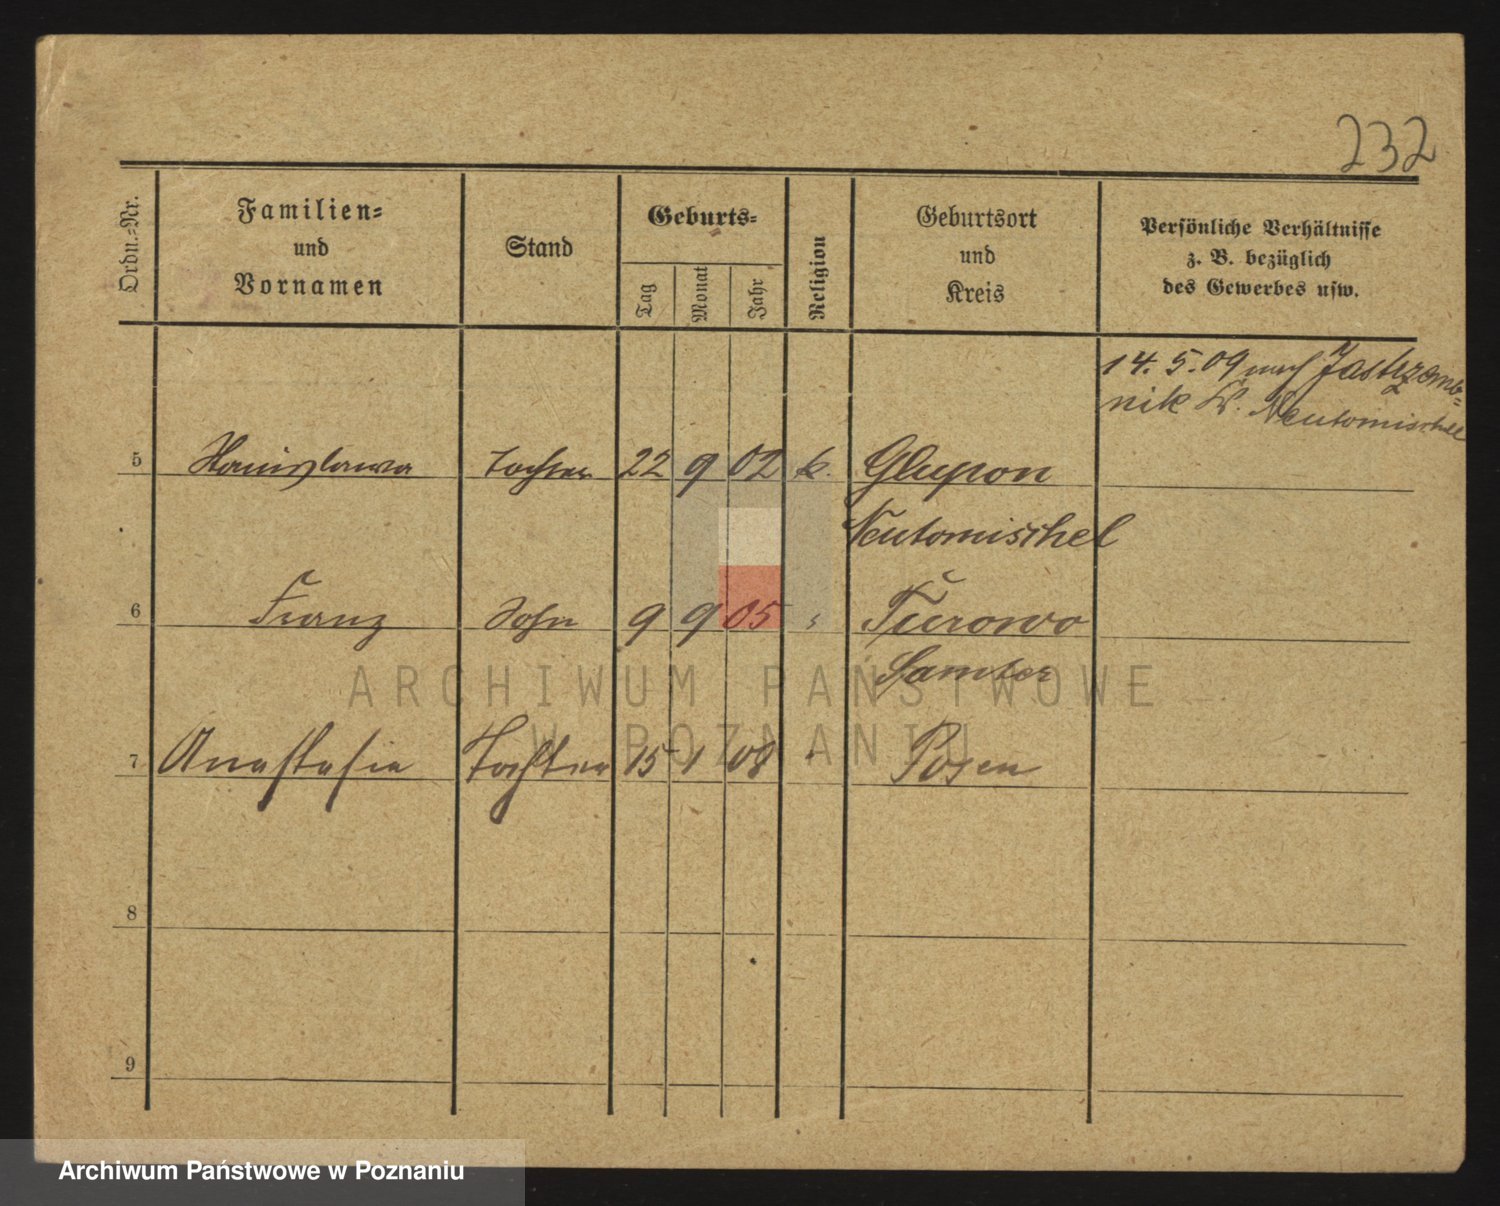 232
Ordn.-Nr.
Familien-
und
Vornamen
Stand
Geburts-
Tag
Monat
Jahr
Religion
Geburtsort
und
Kreis
Persönliche Verhältnisse
z. B. bezüglich
des Gewerbes usw.
14. 5. 09 nach Jastrzemb-
nik Kr. Neutomischel
5 Stanislawa Tochter 22 9 02 k. Glupon
Neutomischel
6 Franz Sohn 9 9 05 " Turowo
Samter
7 Anastasia Tochter 15 1 08 " Posen
8
9
ARCHIWUM PAŃSTWOWE
W POZNANIU
Archiwum Państwowe w Poznaniu